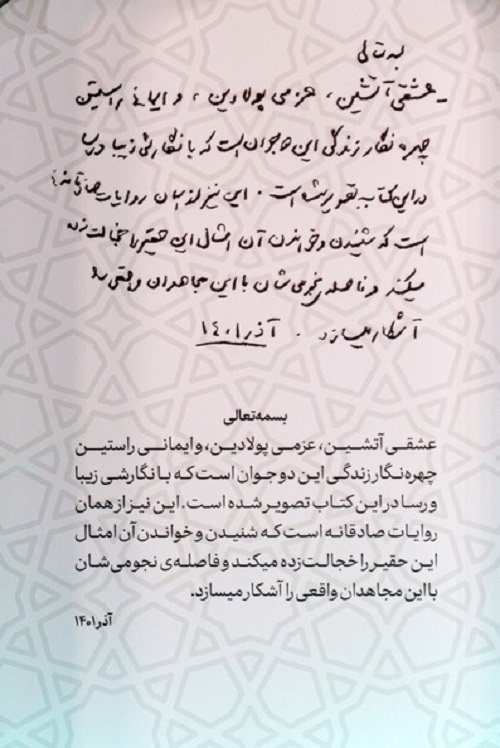 بسمه‌تعالی
ـ عشقی آتشین، عزمی پولادین، و ایمانی راستین
چهره نگار زندگی این دو جوان است که با نگارشی زیبا و رسا
در این کتاب تصویر شده است. این نیز از همان روایات صادقانه
است که شنیدن و خواندن آن امثال این حقیر را خجالت زده
میکند و فاصله‌ی نجومی شان با این مجاهدان واقعی را
آشکار میسازد. آذر ۱۴۰۱
بسمه‌تعالی
عشقی آتشین، عزمی پولادین، و ایمانی راستین
چهره‌نگار زندگی این دو جوان است که با نگارشی زیبا
و رسا در این کتاب تصویر شده است. این نیز از همان
روایات صادقانه است که شنیدن و خواندن آن امثال
این حقیر را خجالت‌زده میکند و فاصله‌ی نجومی‌شان
با این مجاهدان واقعی را آشکار میسازد.
آذر ۱۴۰۱